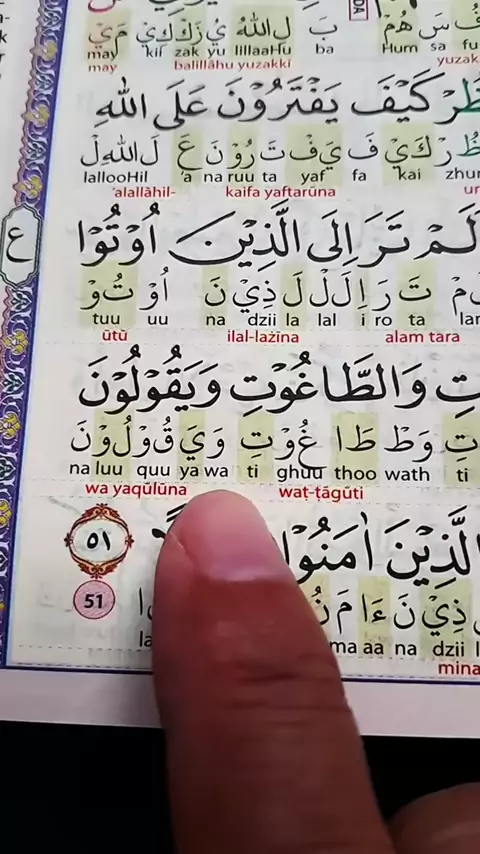 هُمْ سَ بَ لِ اللهُ يُ زَكْ كِيْ مَيْ
Hum sa ba lillaaHu yu zak kii may
balillāhu yuzakkī may
كَيْفَ يَفْتَرُوْنَ عَلَى اللهِ
ظُرْ كَيْ فَ يَفْ تَ رُوْ نَ عَ لَ اللهِ لْ
zhur kai fa yaf ta ruu na 'a lallooHil
kaifa yaftarūna 'alallāhil-
تَرَ اِلَى الَّذِيْنَ اُوْتُوْا
تَ رَ اِ لَ لْ لَ ذِيْ نَ اُوْ تُوْ
ta ro i lal la dzii na uu tuu
alam tara ilal-lażīna ūtū
وَالطَّاغُوْتِ وَيَقُوْلُوْنَ
تِ وَطْ طَا غُوْ تِ وَ يَ قُوْ لُوْ نَ
ti wath thoo ghuu ti wa ya quu luu na
waṭ-ṭāgūti wa yaqūlūna
الَّذِيْنَ اٰمَنُوْا
٥١
ذِيْ نَ ءَا مَ نُ
51
dzii na aa ma la
mina
ع